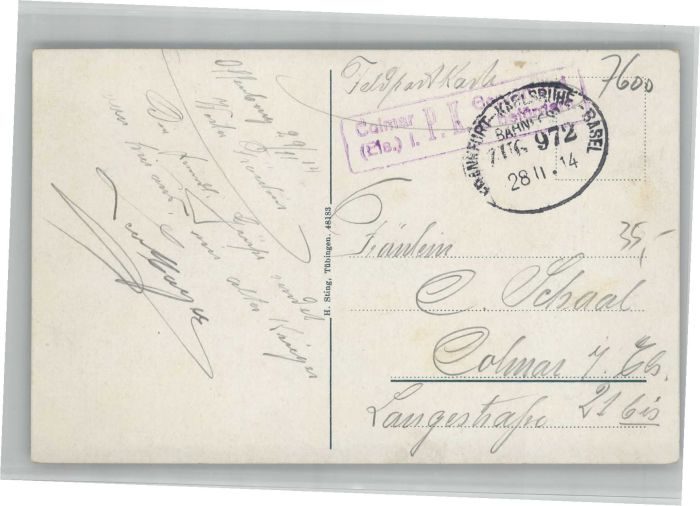 Offenburg 29/11 14
Werte Fräulein
Die freundl. Grüße sendet
von hier aus, ein alter Krieger
H. Sting, Tübingen. 48183
Feldpostkarte
7600
Colmar P. K.
(Els.) I.
FRANKFURT-KARLSRUHE-BASEL
BAHNPOST
ZUG 972
28 11. 14
35,-
Fräulein
C. Schaal
Colmar i. Els.
Langestraße 21 bis